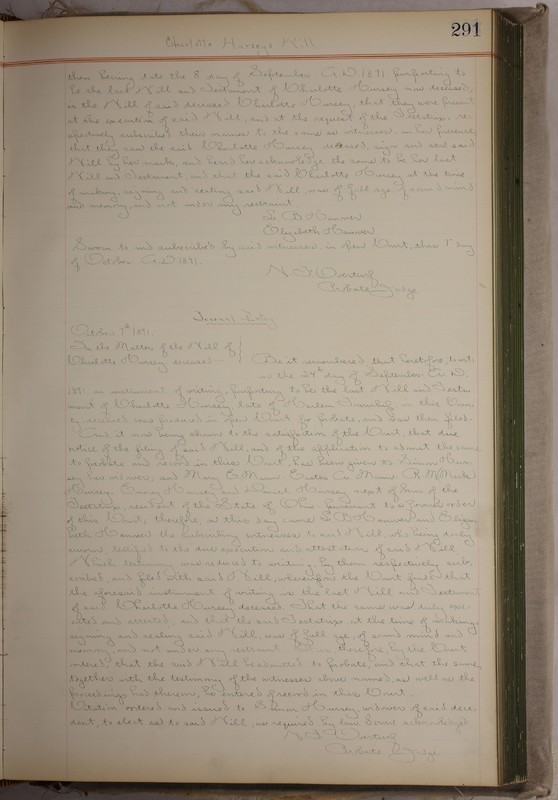 291
Charlotte Hursey's Will
them bearing date the 8 day of September A.D. 1891 purporting to
be the last Will and Testament of Charlotte Hursey now deceased,
is the Will of said deceased Charlotte Hursey, that they were present
at the execution of said Will, and at the request of the Testatrix, re-
spectively subscribed their names to the same as witnesses, in her presence
that they saw the said Charlotte Hursey deceased, sign and seal said
Will by her mark, and heard her acknowledge the same to be her last
Will and Testament, and that the said Charlotte Hursey at the time
of making, signing and sealing said Will, was of full age, of sound mind
and memory, and not under any restraint
S. B. Hanover
Elizabeth Hanover
Sworn to and subscribed by said witnesses in open Court, this 7 day
of October A.D. 1891.
Probate Judge
Journal Entry
October 7th 1891.
In the Matter of the Will of
Charlotte Hursey deceased
Be it remembered that heretofore, to wit:
on the 24th day of September A.D.
1891 an instrument of writing, purporting to be the last Will and Testa-
ment of Charlotte Hursey, late of Harlem Township in this Coun-
ty, deceased was produced in open Court for probate, and was then filed.
And it now being shown to the satisfaction of the Court, that due
notice of the filing of said Will, and of the application to admit the same
to probate and record in this Court, has been given to Simon Hur-
sey her widower, and Mary E. Mann
Hursey, and Daniel Hursey, next of kin of the
Testatrix, resident of the State of Ohio pursuant to a former order
of this Court, therefore, on this day came S. B. Hanover and Eliza-
beth Hanover the subscribing witnesses to said Will, who being duly
sworn testified to the due execution and attestation of said Will
Which testimony was reduced to writing, by them respectively sub-
scribed, and filed with said Will, whereupon the Court finds that
the aforesaid instrument of writing is the last Will and Testament
of said Charlotte Hursey deceased. That the same was duly exe-
cuted and attested, and that the said Testatrix, at the time of making,
signing and sealing said Will, was of full age, of sound mind and
memory, and not under any restraint. It is therefore by the Court
ordered, that the said Will be admitted to probate, and that the same,
together with the testimony of the witnesses above named, as well as the
proceedings had therein, be entered of record in this Court.
Citation ordered and issued to Simon Hursey, widower of said dece-
dent, to elect as to said Will, as required by law. Same acknowledged
Probate Judge